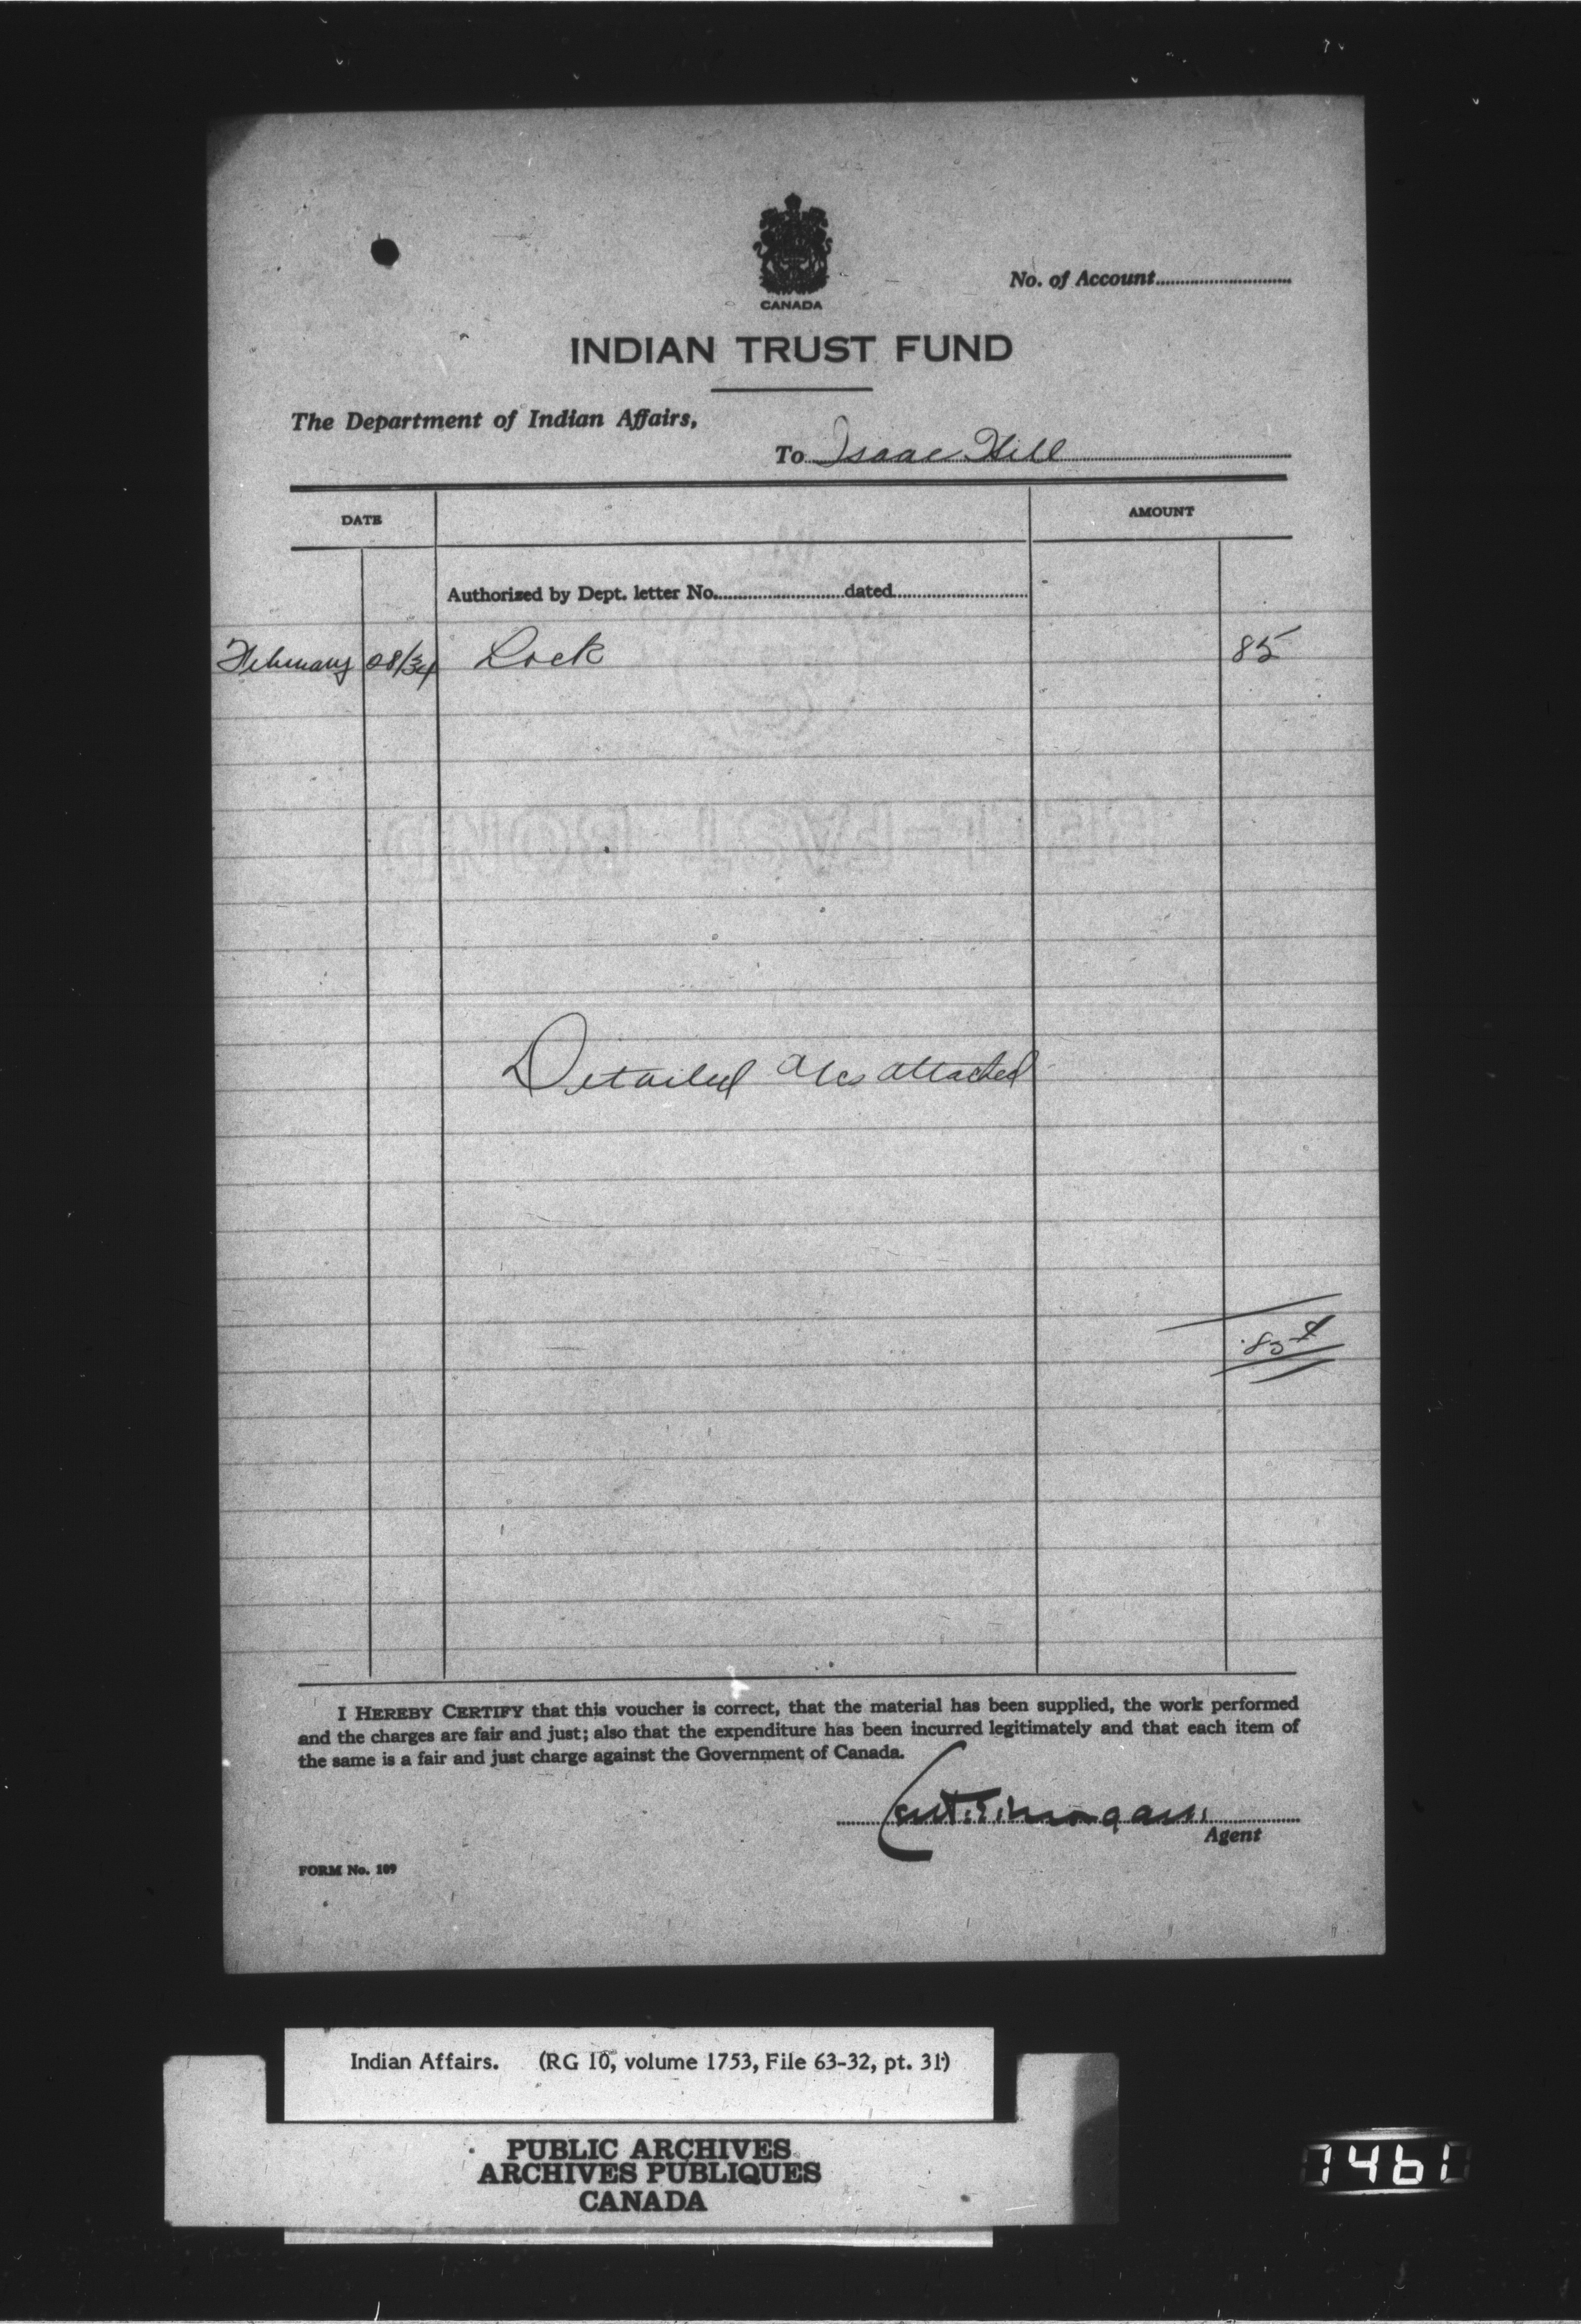 CANADA
No. of Account
INDIAN TRUST FUND
The Department of Indian Affairs,
To Isaac Hill
DATE AMOUNT
Authorized by Dept. letter No. dated
February 28/34 Lock 85
Detailed a/cs attached
.85¢
I HEREBY CERTIFY that this voucher is correct, that the material has been supplied, the work performed
and the charges are fair and just; also that the expenditure has been incurred legitimately and that each item of
the same is a fair and just charge against the Government of Canada.
Morgan
Agent
FORM No. 109
Indian Affairs. (RG 10, volume 1753, File 63-32, pt. 31)
PUBLIC ARCHIVES
ARCHIVES PUBLIQUES
CANADA
1461